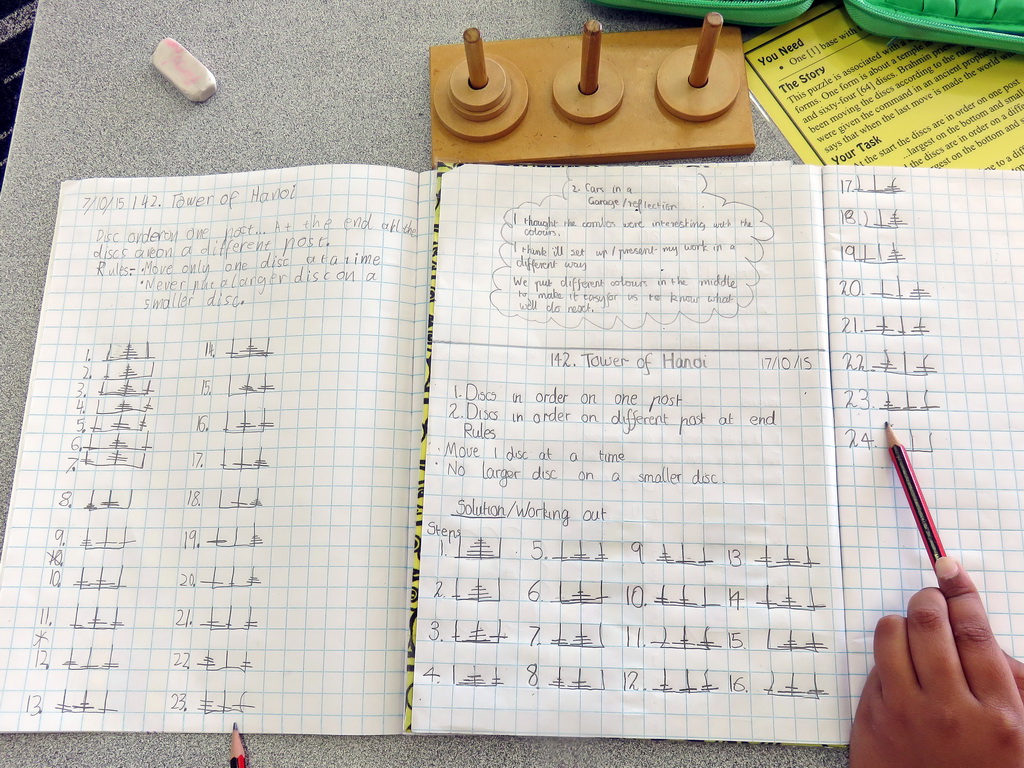 You Need
• One [1] base with
The Story
This puzzle is associated with
forms. One form is about a temple
and sixty-four [64] discs. Brahmin
been moving the discs according to the
were given the command in an ancient
says that when the last move is made the world
Your Task
At the start the discs are in order on one post
largest on the bottom and
the discs are in order on a
on the bottom and
7/10/15 142. Tower of Hanoi
Disc order on one post... At the end all the
discs are on a different post.
Rules- • Move only one disc at a time
• Never put a larger disc on a
smaller disc.
1.
2.
3.
4.
5.
6.
7.
8.
9.
10.
11.
12.
13.
14.
15.
16.
17.
18.
19.
20.
21.
22.
23.
2. Cars in a
Garage/reflection
I thought the comics were interesting with the
colours.
I think ill set up/present my work in a
different way
We put different colours in the middle
to make it easy for us to know what
we'll do next.
142. Tower of Hanoi 17/10/15
1. Discs in order on one post
2. Discs in order on different post at end
Rules
• Move 1 disc at a time
• No larger disc on a smaller disc.
Solution/Working out
Steps
1. 5. 9 13.
2. 6. 10. 14
3. 7. 11. 15.
4. 8 12. 16.
17.
18.
19.
20.
21.
22.
23.
24.